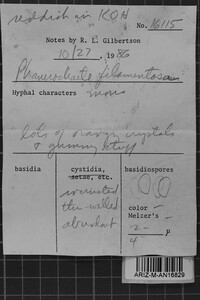 reddish in KOH
No. 16115
Notes by R. L. Gilbertson
10/27, 1986
Phanerochaete filamentosa
Hyphal characters mono
lots of orange crystals
& gummy stuff
basidia
cystidia,
setae, etc.
incrusted
thin-walled
abundant
basidiospores
color -
Melzer's -
2 μ
4
ARIZ-M-AN16829